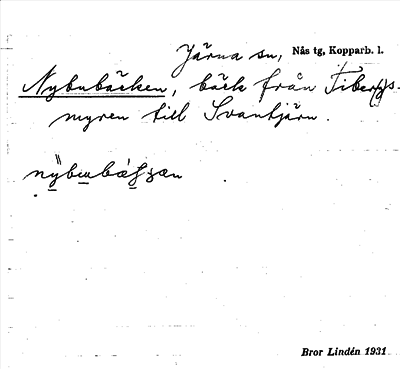 Järna sn, Nås tg, Kopparb. l.
Nybubäcken, bäck från Tibergs-
myren till Svantjärn.
Bror Lindén 1931